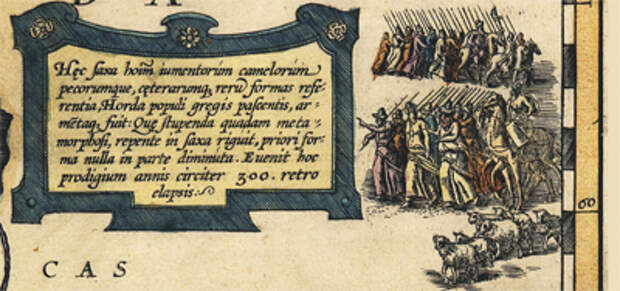 D A
Hęc saxa hoim̄ iumentorum camelorum
pecorumque, cęterarumq; rerū formas refe-
rentia, Horda populi gregis pascentis, ar-
mētaq; fuit: Quę stupenda quadam meta
morphosi, repente in saxa riguit, priori for-
ma nulla in parte diminuta. Euenit hoc
prodigium annis circiter 300. retro
elapsis.
60
C A S